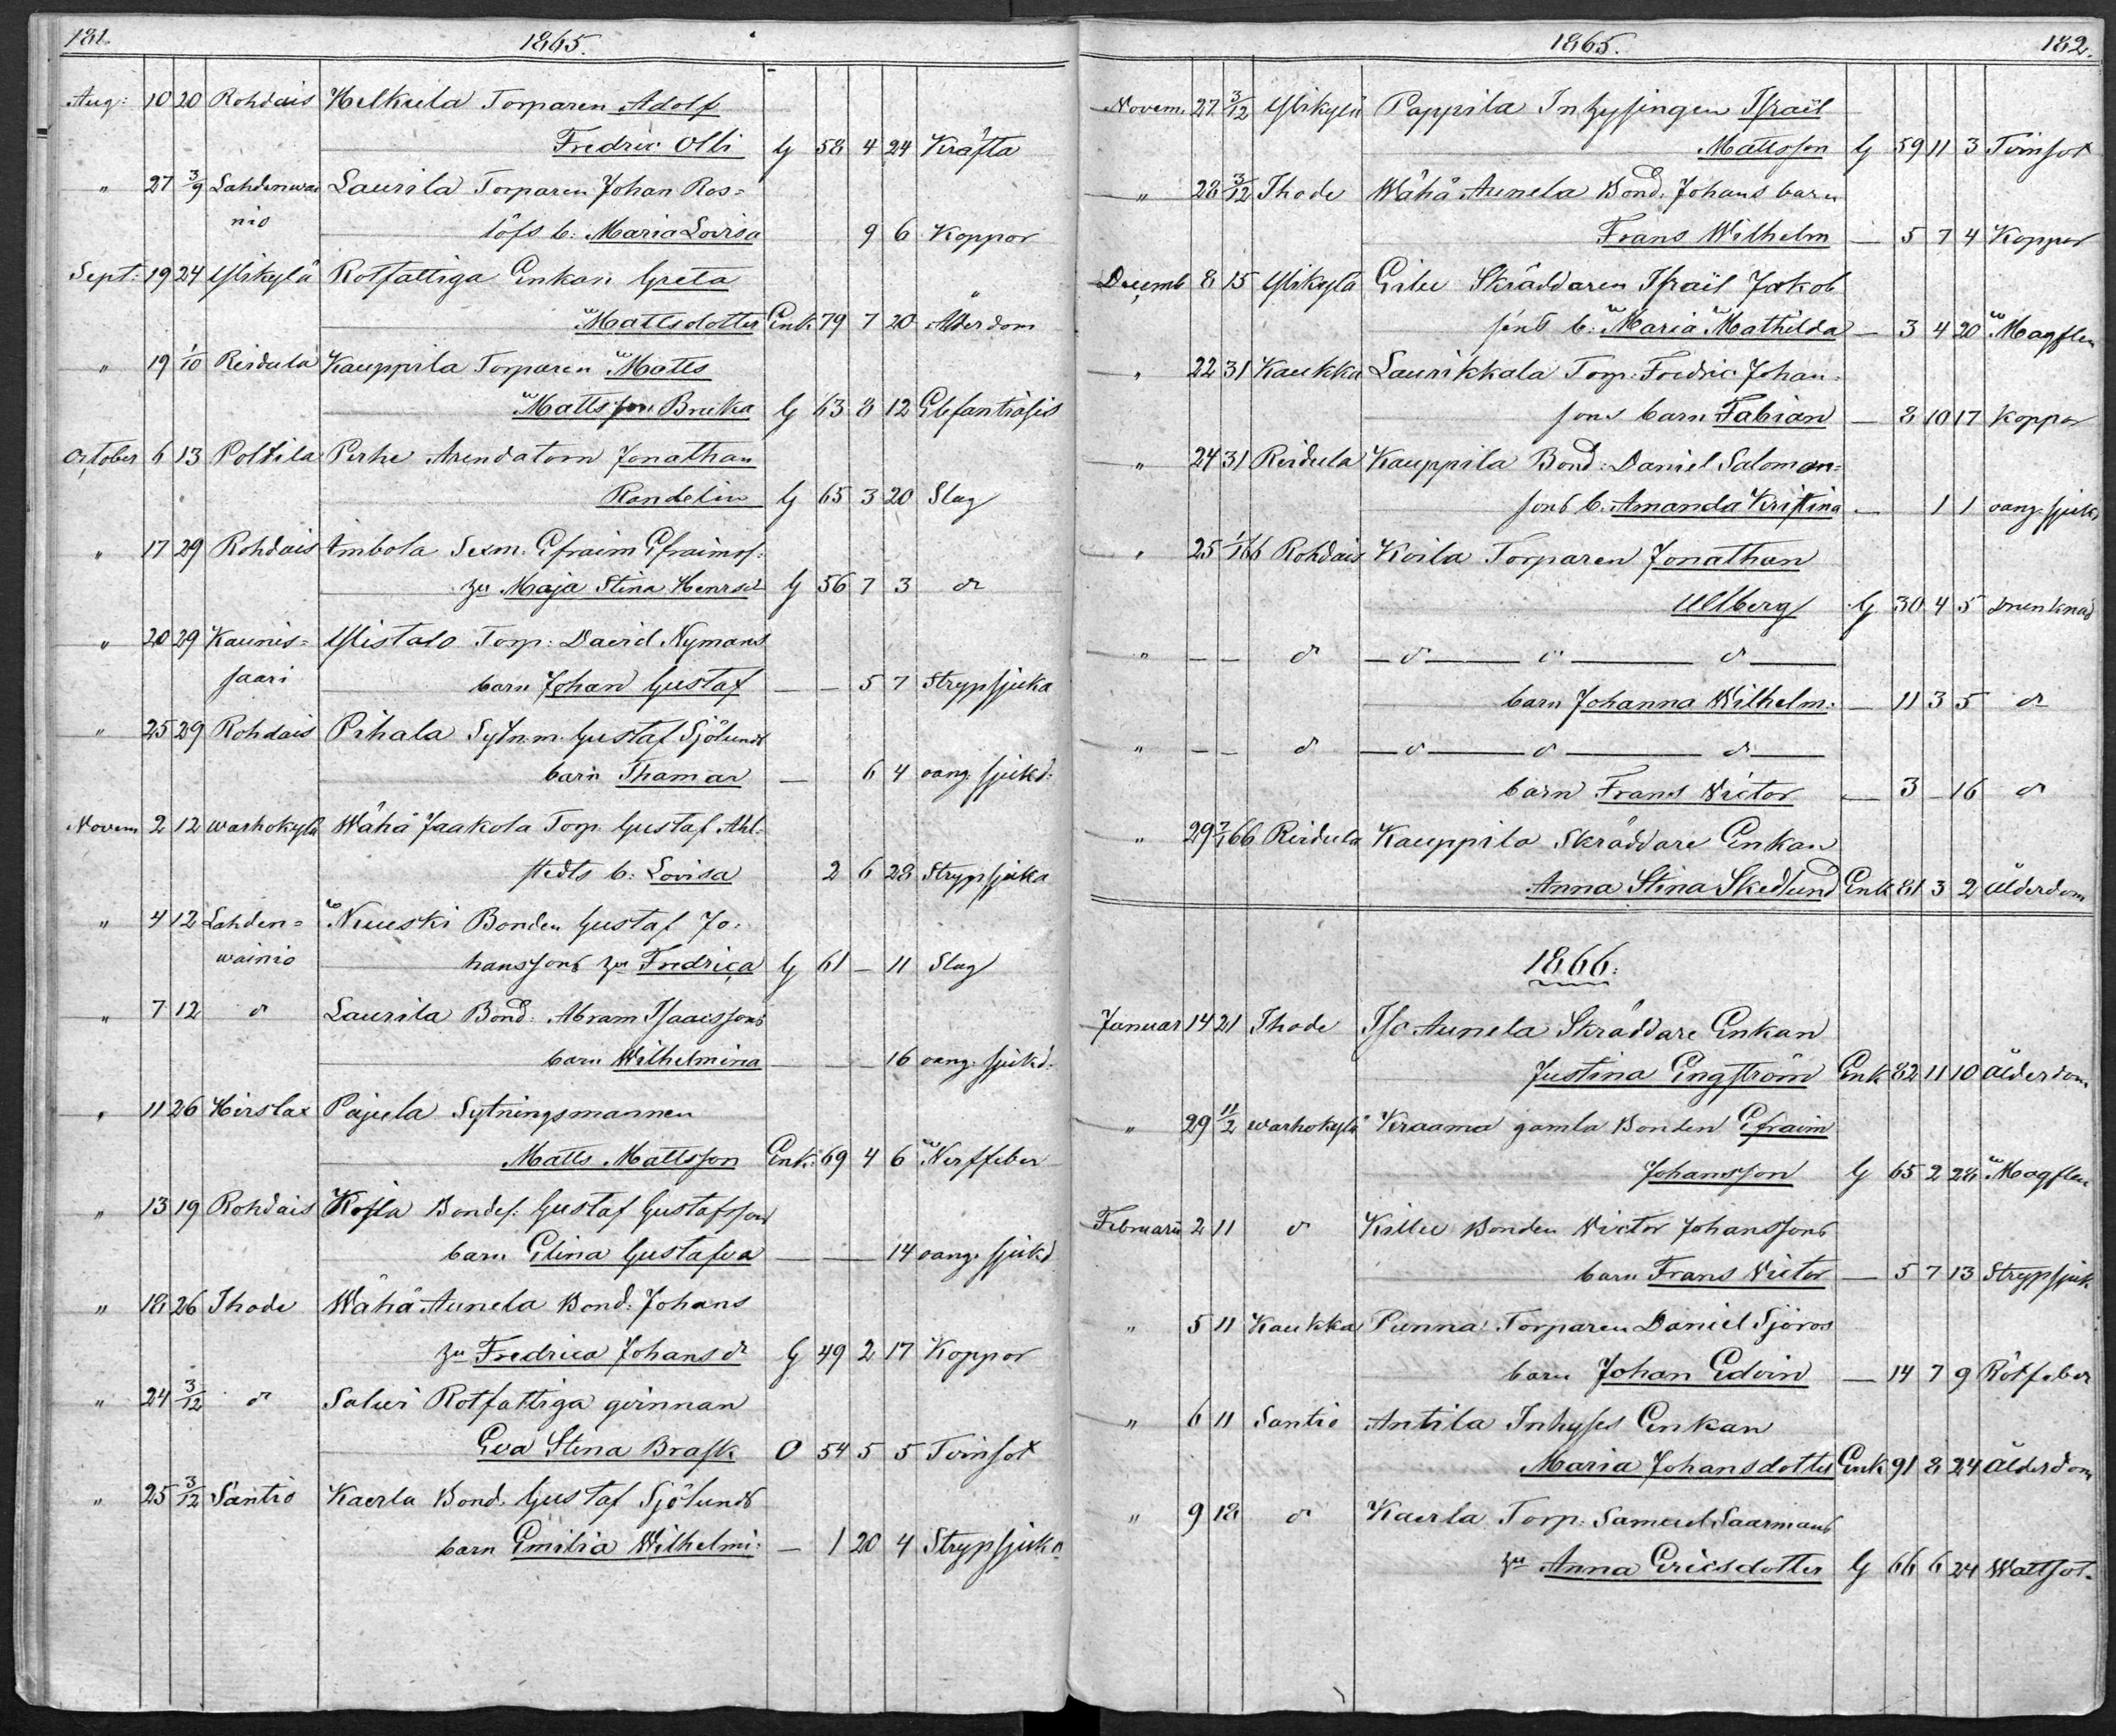 181.
1865.
Aug: 10 20 Rohdais Helkula Torparen Adolf
Fredric Olli G 58 4 24 Kräfta
" 27 3/9 Lahdenwai Laurila Torparen Johan Ros=
nio löfs b: Maria Lovisa 9 6 Koppor
Sept: 19 24 Ylikylä Rotfattiga Enkan Greta
Mattsdotter Enk. 79 7 20 Ålderdom
" 19 1/10 Reidula Kauppila Torparen Matts
Mattsson Bruka G 63 8 12 Elefantiasis
October 6 13 Poltila Perhe Arendatorn Jonathan
Randelin G 65 3 20 Slag
" 17 29 Rohdais Ambola Sexm. Efraim Efraimss:
hu Maja Stina Henrsdr G 56 7 3 dr
" 20 29 Kaunis= Ylistalo Torp: David Nymans
saari barn Johan Gustaf — — 5 7 Strypsjuka
" 25 29 Rohdais Pihala Sytn.m. Gustaf Sjölunds
barn Thamar — 6 4 oang. sjukd:
Novem 2 12 Warhokylä Wähä Jaakola Torp. Gustaf Ahl=
stedts b: Lovisa 2 6 28 Strypsjuka
" 4 12 Lahden= Nuuski Bonden Gustaf Jo=
wainio hanssons hu Fredrica G 61 — 11 Slag
" 7 12 dr Laurila Bond: Abram Isaacssons
barn Wilhelmina — — — 16 oang. sjukd:
" 11 26 Hirslax Pajula Sytningsmannen
Matts Mattsson Enk: 69 4 6 Nerffeber
" 13 19 Rohdais Koila Bondes: Gustaf Gustafssons
barn Elina Gustafva — — 14 oang. sjukd
" 18 26 Ihode Wähä Aunela Bond: Johans
hu Fredrica Johansdr G 49 2 17 Koppor
" 24 3/12 dr Salui Rotfattiga qvinnan
Eva Stina Brask O 54 5 5 Tvinsot
" 25 3/12 Santio Kaerla Bond. Gustaf Sjölunds
barn Emilia Wilhelmi: — 1 20 4 Strypsjuka
1865.
182.
Novem. 27 3/12 Ylikylä Pappila Inhysingen Israël
Mattsson G 59 11 3 Tvinsot
" 28 3/12 Ihode Wähä Aunela Bond: Johans barn
Frans Wilhelm — 5 7 4 Koppor
Decemb 8 15 Ylikylä Eilu Skräddaren Israël Jakob
sons b: Maria Mathilda — 3 4 20 Magflen
" 22 31 Kaukka Laurikkala Torp: Fredric Johan=
sons barn Fabian — 8 10 17 Koppor
" 24 31 Reidula Kauppila Bond: Daniel Saloman=
sons b. Amanda Kristina — 1 1 oang. sjukd
" 25 1/1 66 Rohdais Koila Torparen Jonathan
Ullberg G 30 4 5 drunknad
" — — dr — dr — dr — dr —
barn Johanna Wilhelm: — 11 3 5 dr
" — — dr — dr — dr — dr —
barn Frans Victor — 3 — 16 dr
" 29 7/1 66 Reidula Kauppila Skräddare Enkan
Anna Stina Skedlund Enk 81 3 2 Ålderdom
1866:
Januar 14 21 Ihode Iso Aunela Skräddare Enkan
Justina Engström Enk 82 11 10 Ålderdom
" 29 11/2 Warhokylä Kraama gamla Bonden Efraim
Johansson G 65 2 28 Magflen
Februarii 2 11 dr Killu Bonden Victor Johanssons
barn Frans Victor — 5 7 13 Strypsjuk
" 5 11 Kaukka Punna Torparen Daniel Sjöros
barn Johan Edvin — 14 7 9 Rötfeber
" 6 11 Santio Antila Inhyses Enkan
Maria Johansdotter Enk 91 8 24 Ålderdom
" 9 18 dr Kaerla Torp: Samuel Saarmans
hu Anna Ericsdotter G 66 6 24 Wattsot.